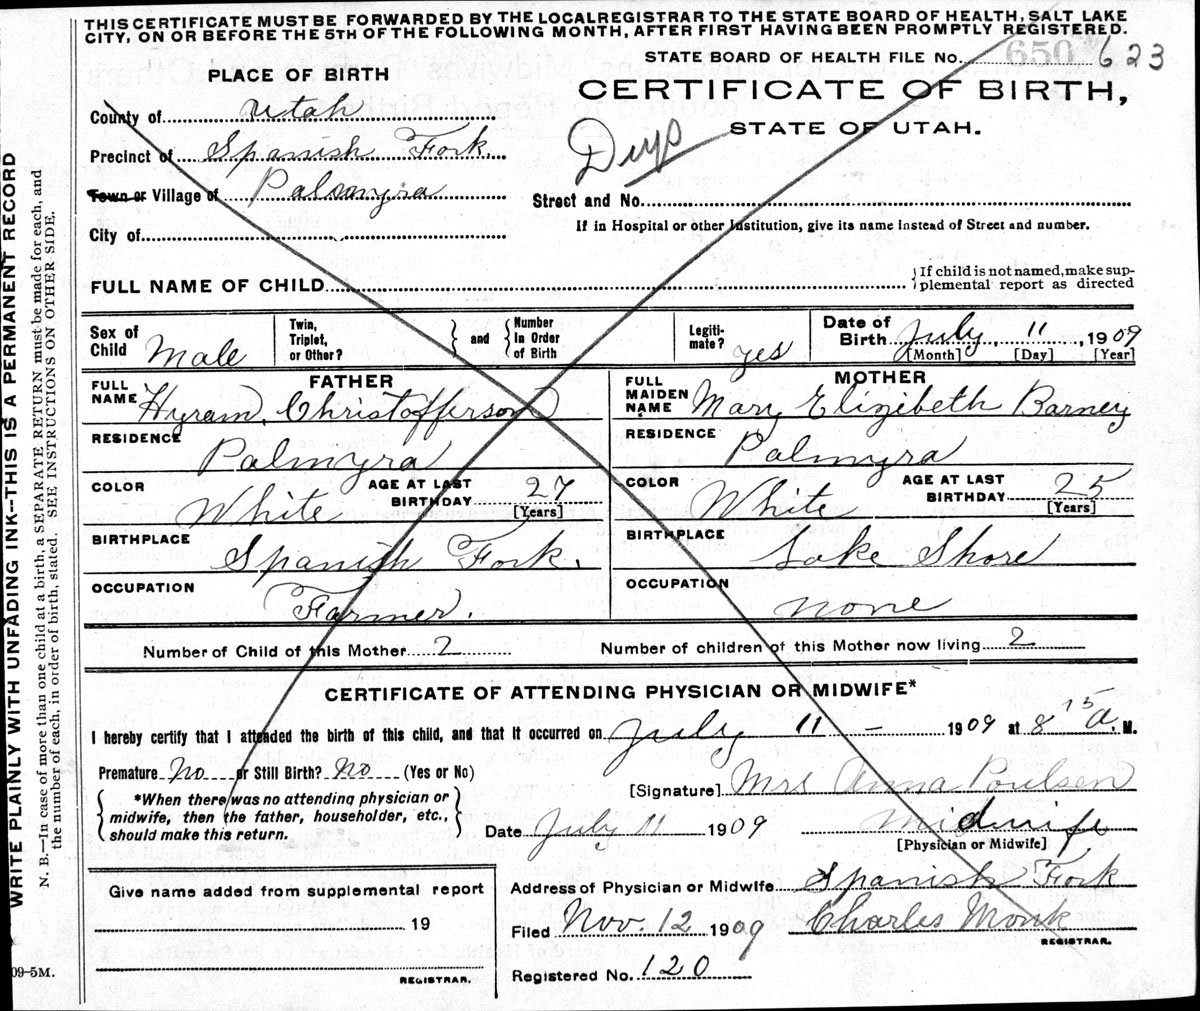 THIS CERTIFICATE MUST BE FORWARDED BY THE LOCAL REGISTRAR TO THE STATE BOARD OF HEALTH, SALT LAKE
CITY, ON OR BEFORE THE 5TH OF THE FOLLOWING MONTH, AFTER FIRST HAVING BEEN PROMPTLY REGISTERED.
STATE BOARD OF HEALTH FILE No. 650 623
PLACE OF BIRTH
CERTIFICATE OF BIRTH,
STATE OF UTAH.
County of Utah
Precinct of Spanish Fork.
Town or Village of Palmyra
City of
Dup
Street and No.
If in Hospital or other Institution, give its name instead of Street and number.
FULL NAME OF CHILD
If child is not named, make sup-
plemental report as directed
Sex of Child Male
Twin, Triplet, or Other? and Number in Order of Birth
Legiti-mate? yes
Date of Birth July, 11, 1909
[Month] [Day] [Year]
FATHER
FULL NAME Hyram Christofferson
RESIDENCE Palmyra
COLOR White AGE AT LAST BIRTHDAY 27 [Years]
BIRTHPLACE Spanish Fork.
OCCUPATION Farmer.
MOTHER
FULL MAIDEN NAME Mary Elizibeth Barney
RESIDENCE Palmyra
COLOR White AGE AT LAST BIRTHDAY 25 [Years]
BIRTHPLACE Lake Shore
OCCUPATION none
Number of Child of this Mother 2 Number of children of this Mother now living 2
CERTIFICATE OF ATTENDING PHYSICIAN OR MIDWIFE*
I hereby certify that I attended the birth of this child, and that it occurred on July 11 - 1909 at 8 15 a. M.
Premature No or Still Birth? No (Yes or No)
*When there was no attending physician or
midwife, then the father, householder, etc.,
should make this return.
[Signature] Mrs Anna Poulsen
Date July 11 1909 Midwife
[Physician or Midwife]
Give name added from supplemental report
19
REGISTRAR.
Address of Physician or Midwife Spanish Fork
Filed Nov. 12 1909 Charles Monk
REGISTRAR.
Registered No. 120
WRITE PLAINLY WITH UNFADING INK--THIS IS A PERMANENT RECORD
N. B.—In case of more than one child at a birth, a SEPARATE RETURN must be made for each, and
the number of each, in order of birth, stated. SEE INSTRUCTIONS ON OTHER SIDE.
09-5M.